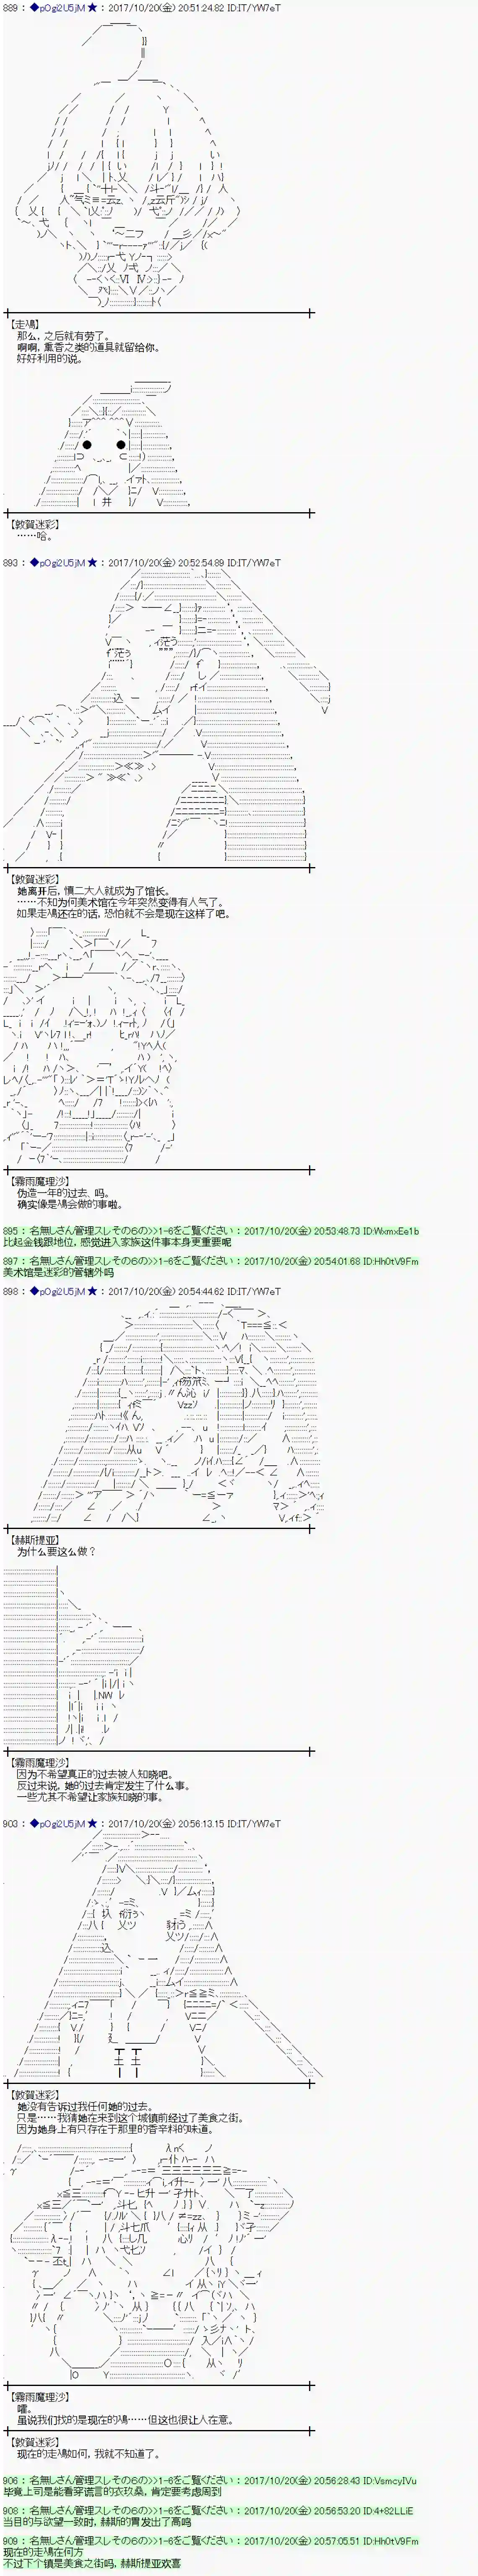 889 : ◆pOgi2U5jM ★ : 2017/10/20(金) 20:51:24.82 ID:IT/YW7eT
【走鳰】
那么，之后就有劳了。
啊啊，熏香之类的道具就留给你。
好好利用的说。
【敦賀迷彩】
……哈。
893 : ◆pOgi2U5jM ★ : 2017/10/20(金) 20:52:54.89 ID:IT/YW7eT
【敦賀迷彩】
她离开后，慎二大人就成为了馆长。
……不知为何美术馆在今年突然变得有人气了。
如果走鳰还在的话，恐怕就不会是现在这样了吧。
【霧雨魔理沙】
伪造一年的过去、吗。
确实像是鳰会做的事啦。
895 : 名無しさん管理スレその６の>>1-6をご覧ください : 2017/10/20(金) 20:53:48.73 ID:WxmxEe1b
比起金钱跟地位，感觉进入家族这件事本身更重要呢
897 : 名無しさん管理スレその６の>>1-6をご覧ください : 2017/10/20(金) 20:54:01.68 ID:Hh0tV9Fm
美术馆是迷彩的管辖外吗
898 : ◆pOgi2U5jM ★ : 2017/10/20(金) 20:54:44.62 ID:IT/YW7eT
【赫斯提亚】
为什么要这么做？
【霧雨魔理沙】
因为不希望真正的过去被人知晓吧。
反过来说，她的过去肯定发生了什么事。
一些尤其不希望让家族知晓的事。
903 : ◆pOgi2U5jM ★ : 2017/10/20(金) 20:56:13.15 ID:IT/YW7eT
【敦賀迷彩】
她没有告诉过我任何她的过去。
只是……我猜她在来到这个城镇前经过了美食之街。
因为她身上有只存在于那里的香辛料的味道。
【霧雨魔理沙】
嚯。
虽说我们找的是现在的鳰……但这也很让人在意。
【敦賀迷彩】
现在的走鳰如何，我就不知道了。
906 : 名無しさん管理スレその６の>>1-6をご覧ください : 2017/10/20(金) 20:56:28.43 ID:VsmcyIVu
毕竟上司是能看穿谎言的衣玖桑，肯定要考虑周到
908 : 名無しさん管理スレその６の>>1-6をご覧ください : 2017/10/20(金) 20:56:53.20 ID:4+82LLiE
当目的与欲望一致时，赫斯的胃发出了高鸣
909 : 名無しさん管理スレその６の>>1-6をご覧ください : 2017/10/20(金) 20:57:05.51 ID:Hh0tV9Fm
现在的走鳰在何方
不过下个镇是美食之街吗，赫斯提亚欢喜